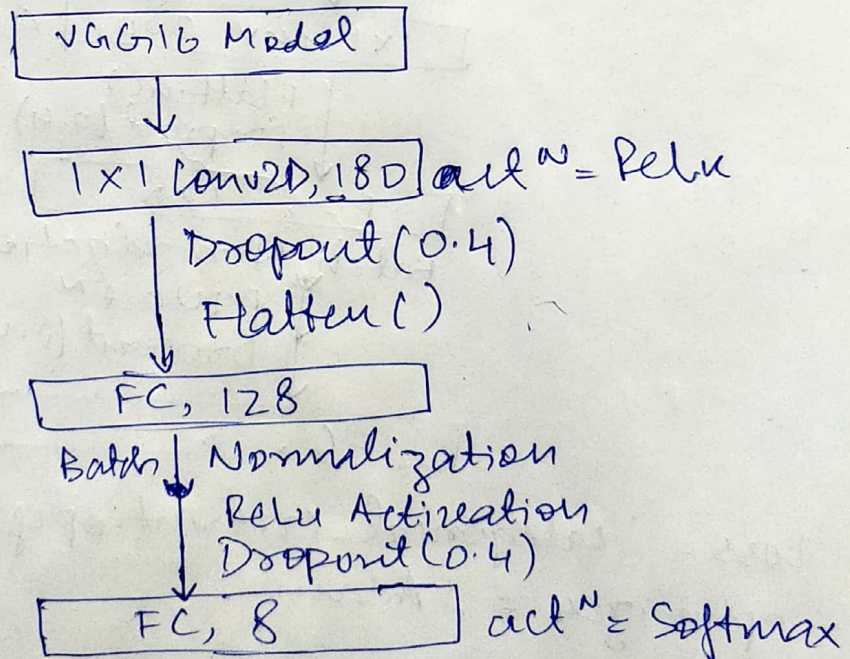 VGG16 Model
1x1 Conv2D, 180 actN = Relu
Dropout (0.4)
Flatten ()
FC, 128
Batch Normalization
ReLu Activation
Dropout (0.4)
FC, 8 actN = Softmax